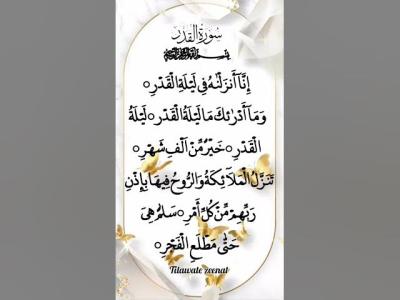 سُورَةُ الْقَدْرِ
بِسْمِ اللّٰهِ الرَّحْمٰنِ الرَّحِيْمِ
إِنَّآ أَنزَلْنٰهُ فِي لَيْلَةِ الْقَدْرِ ○
وَمَآ أَدْرٰىكَ مَا لَيْلَةُ الْقَدْرِ ○ لَيْلَةُ
الْقَدْرِ ○ خَيْرٌ مِّنْ أَلْفِ شَهْرٍ ○
تَنَزَّلُ الْمَلَآئِكَةُ وَالرُّوحُ فِيهَا بِإِذْنِ
رَبِّهِمْ مِّنْ كُلِّ أَمْرٍ ○ سَلٰمٌ هِيَ
حَتّٰى مَطْلَعِ الْفَجْرِ ○
Tilawate zeenat